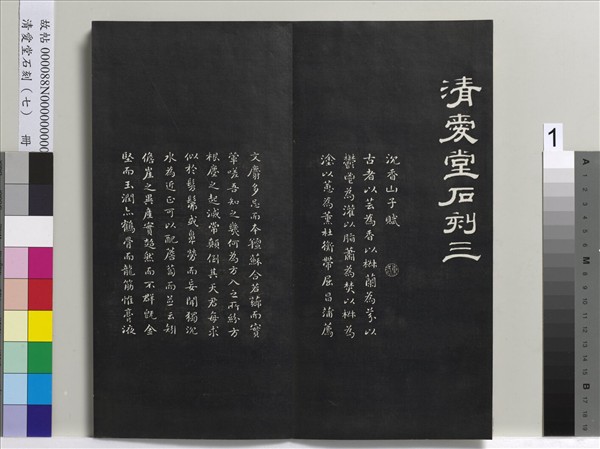 清愛堂石刻三
沉香山子賦
古者以芸為香以蘭為芬以
鬱鬯為灌以脂蕭為焚以椒為
塗以蕙為薰杜衡帶屈菖蒲薦
文麝多忌而本羶蘇合若薌而實
葷嗟吾知之幾何為方入之所分方
根塵之起滅常顛倒其天君每求
似於髣髴或鼻勞而妄聞獨沉
水為近正可以配薝蔔而並云矧
儋崖之異產實超然而不群既金
堅而玉潤亦鶴骨而龍筋惟膏液
故帖 000088N000000000
清愛堂石刻（七） 冊
1
A
M
B